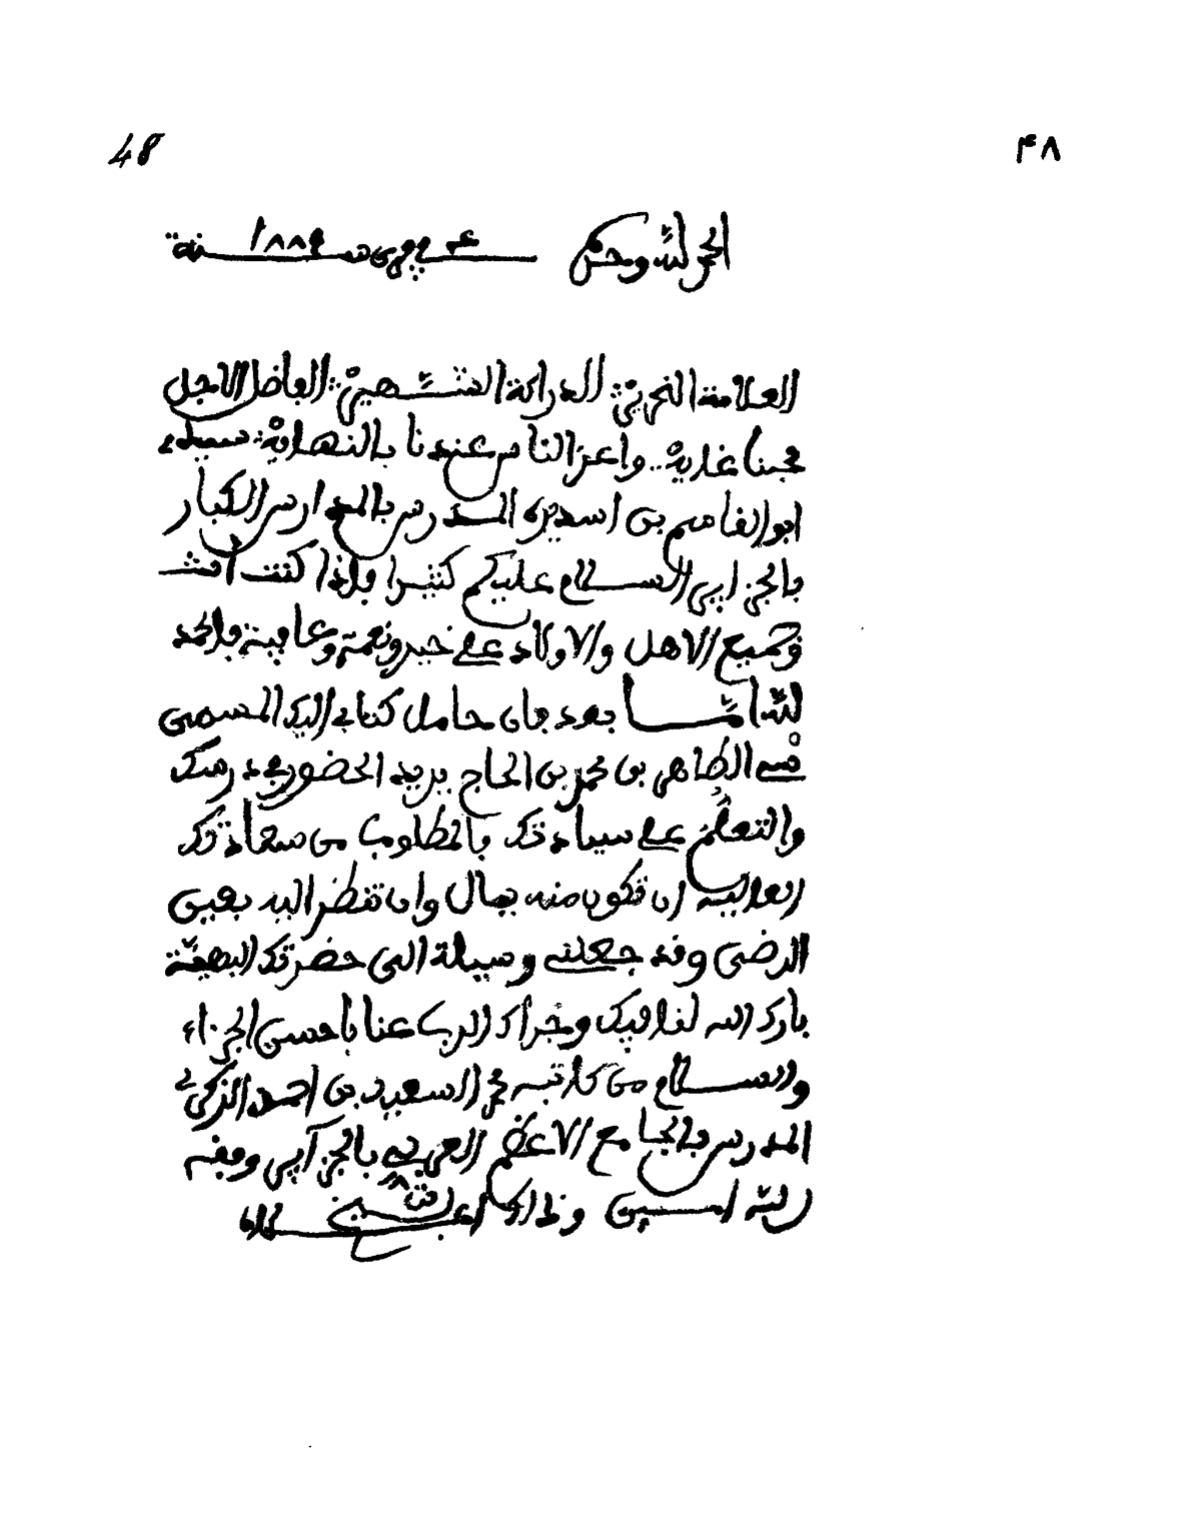 48 ٤٨
الحمد لله وحده في سنة ١٨٨٩
العلامة النحرير الدراكة الشهير الفاضل الاجل
محبنا غاية واعز الناس عندنا بالنهاية سيدي
ابو القاسم بن اسديره المدرس بالمدارس الكبار
بالجزاير السلام عليكم كثيرا فاذا كنت انت
وجميع الاهل والاولاد على خير ونعمة وعافية فالحمد
لله امّا بعد فان حامل كتابي اليك المسمى
سي الطاهر بن محمد بن الحاج يريد الحضور في درسك
والتعلم على سيادتك فالمطلوب من سعادتك
العالية ان تكون منه ببال وان تنظر اليه بعين
الرضى وقد جعلني وسيلة الى حضرتك البهية
بارك الله لنا فيك وجزاك الرب عنا باحسن الجزاء
والسلام من كاتبه محمد السعيد بن احمد الزكري
المدرس بالجامع الاعظم العربي بالجزاير وفقه
الله امين